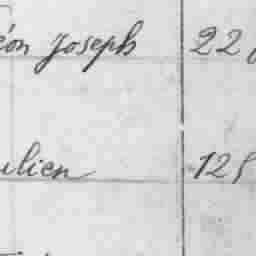 éon Joseph 22
ulien 125